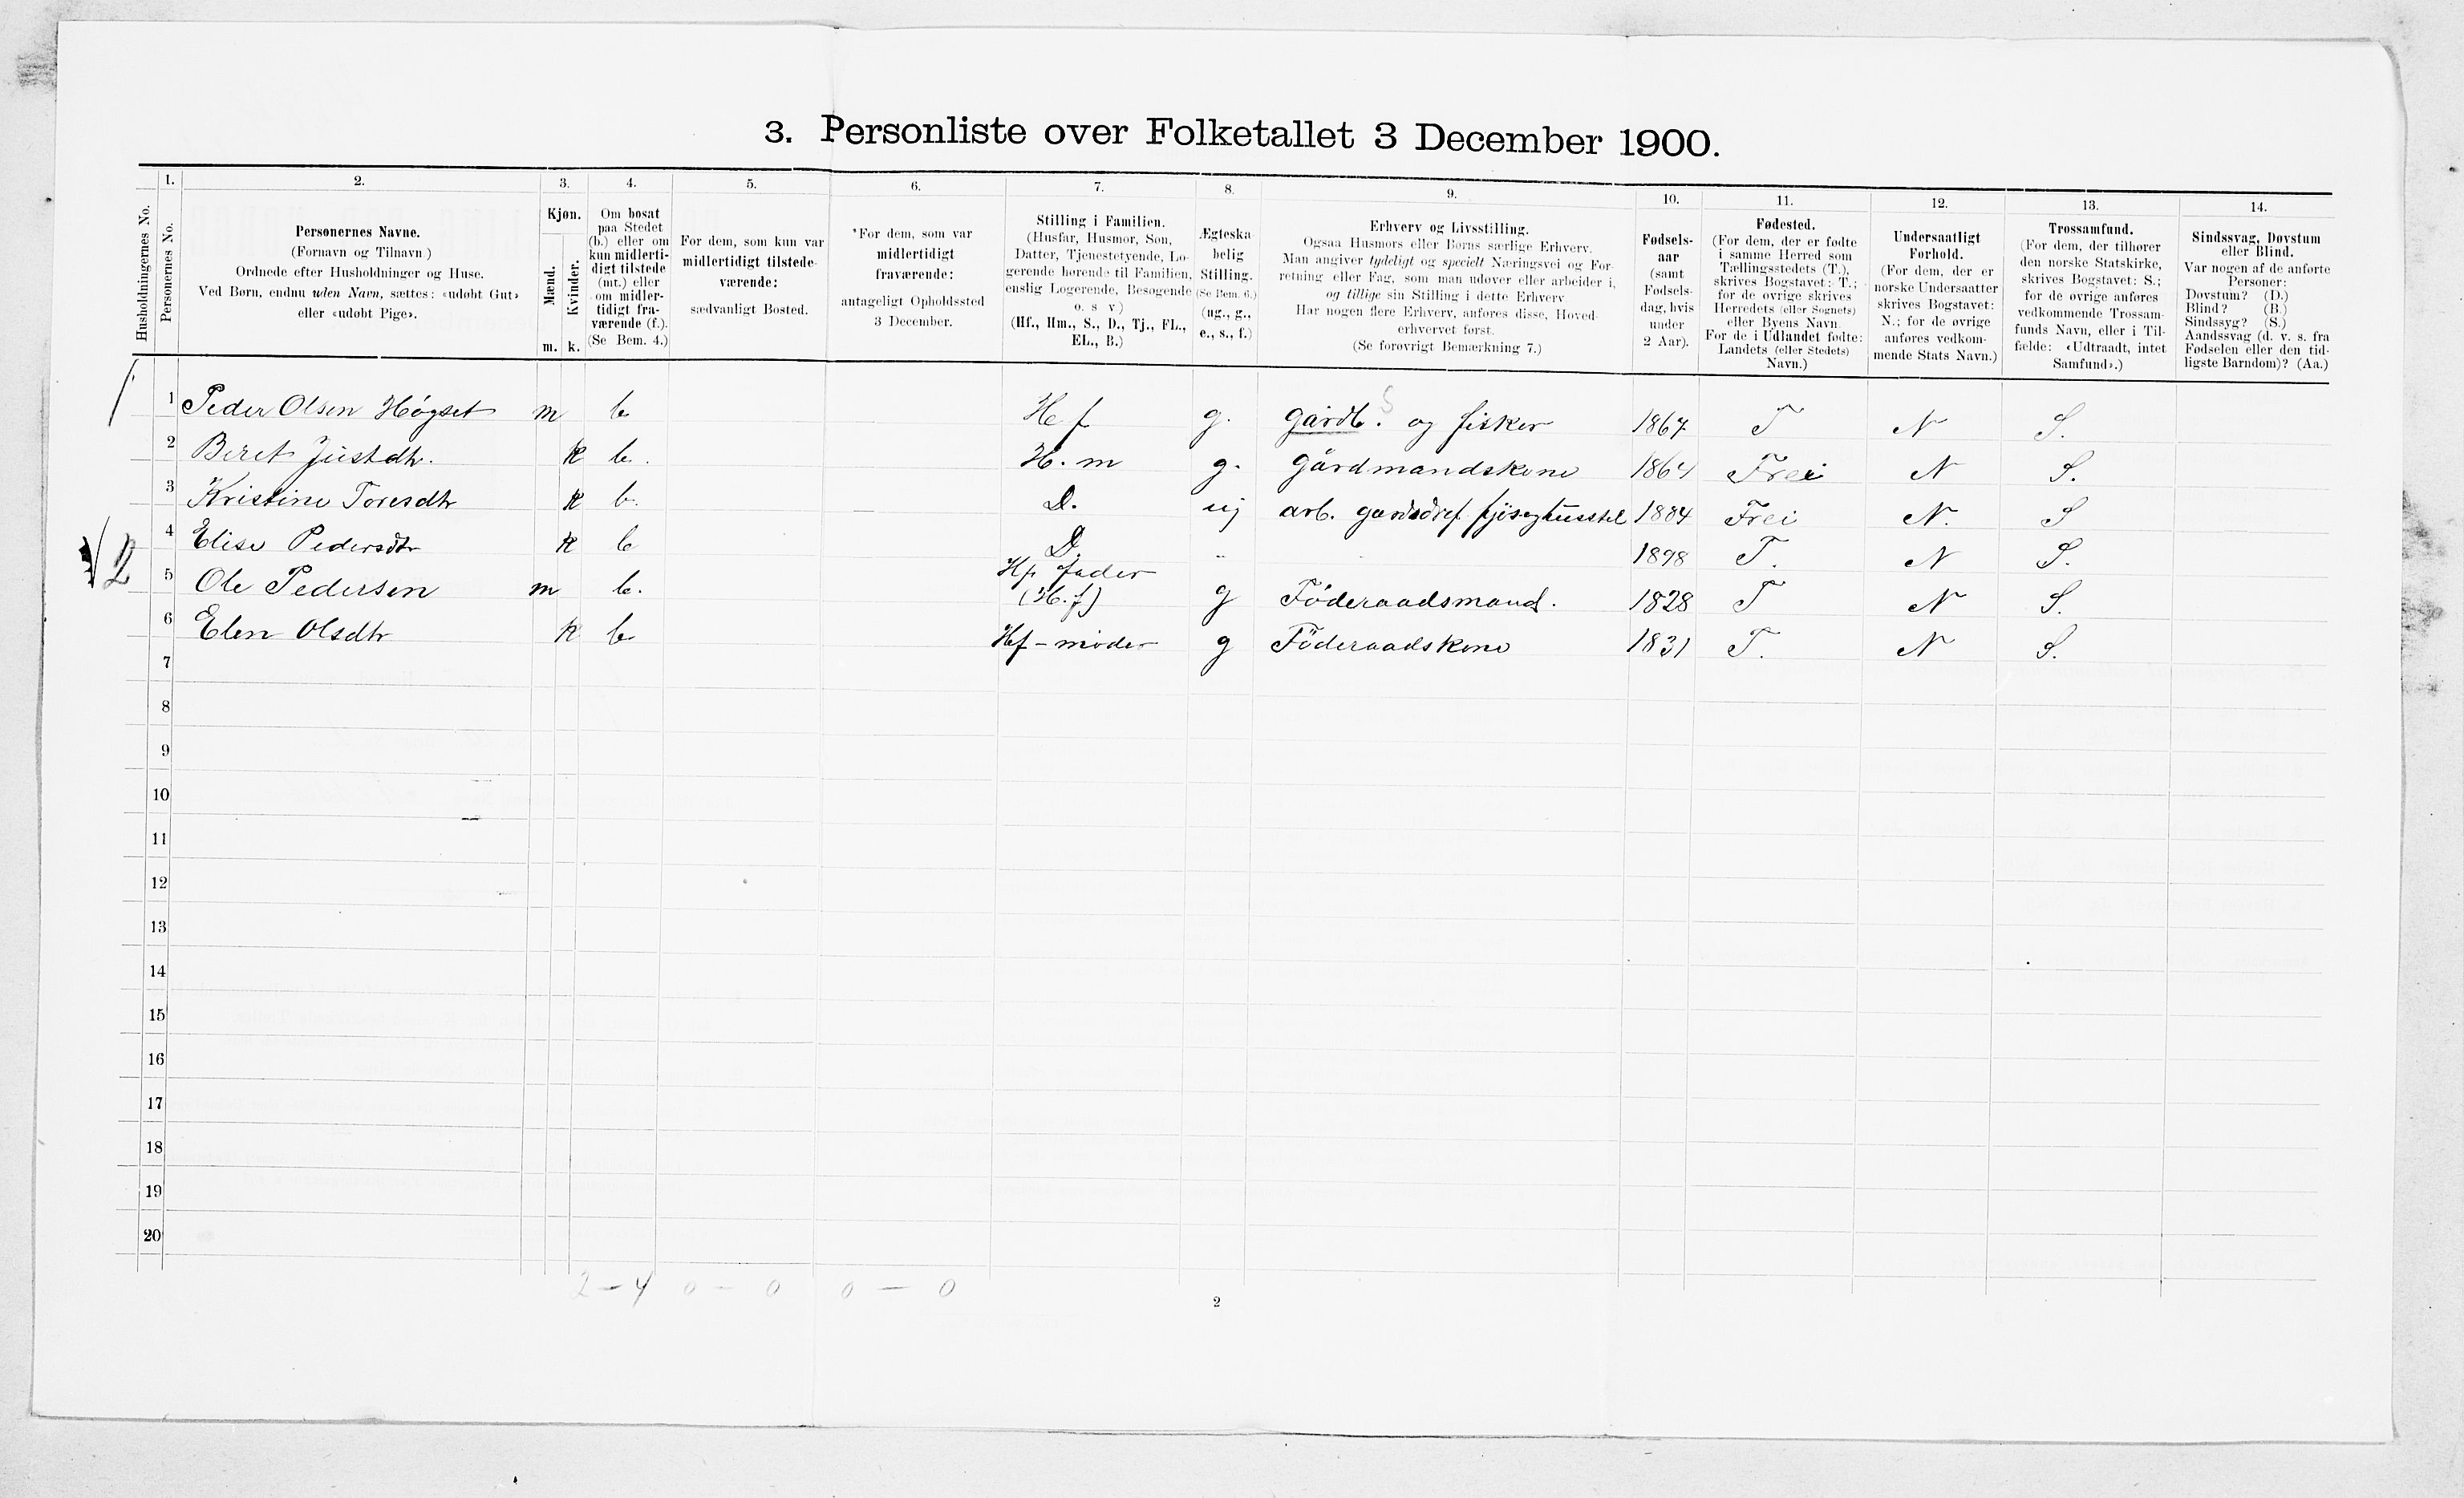 3. Personliste over Folketallet 3 December 1900.
1. 2. 3. 4. 5. 6. 7. 8. 9. 10. 11. 12. 13. 14.
Husholdningernes No.
Personernes No.
Personernes Navne.
(Fornavn og Tilnavn )
Ordnede efter Husholdninger og Huse.
Ved Børn, endnu uden Navn, sættes: «udøbt Gut»
eller «udøbt Pige».
Kjøn.
Mænd.
Kvinder.
m. k.
Om bosat
paa Stedet
(b.) eller om
kun midlerti-
digt tilstede
(mt.) eller
om midler-
tidigt fra-
værende (f.).
(Se Bem. 4.)
For dem, som kun var
midlertidigt tilstede-
værende:
sædvanligt Bosted.
*For dem, som var
midlertidigt
fraværende:
antageligt Opholdssted
3 December.
Stilling i Familien.
(Husfar, Husmor, Søn,
Datter, Tjenestetyende, Lo-
gerende hørende til Familien,
enslig Logerende, Besøgende
o. s v)
(Hf., Hm., S., D., Tj., FL.,
EL., B.)
Ægteska
belig
Stilling.
(Se Bem. 6.)
(ug., g.,
e., s., f.)
Erhverv og Livsstilling.
Ogsaa Husmors eller Børns særlige Erhverv.
Man angiver tydeligt og specielt Næringsvei og For-
retning eller Fag, som man udøver eller arbeider i,
og tillige sin Stilling i dette Erhverv
Har nogen flere Erhverv, anføres disse, Hoved-
erhvervet først.
(Se forøvrigt Bemærkning 7.)
Fødsels-
aar
(samt
Fødsels-
dag, hvis
under
2 Aar).
Fødested.
(For dem, der er fødte
i samme Herred som
Tællingsstedets (T.),
skrives Bogstavet: T.;
for de øvrige skrives
Herredets (eller Sognets)
eller Byens Navn.
For de i Udlandet fødte:
Landets (eller Stedets)
Navn.)
Undersaatligt
Forhold.
(For dem, der er
norske Undersaatter
skrives Bogstavet:
N.; for de øvrige
anføres vedkom-
mende Stats Navn.)
Trossamfund.
(For dem, der tilhører
den norske Statskirke,
skrives Bogstavet: S.;
for de øvrige anføres
vedkommende Trossam-
funds Navn, eller i Til-
fælde: «Udtraadt, intet
Samfund».)
Sindssvag, Døvstum
eller Blind.
Var nogen af de anførte
Personer:
Døvstum? (D.)
Blind? (B.)
Sindssyg? (S.)
Aandssvag (d. v. s. fra
Fødselen eller den tid-
ligste Barndom)? (Aa.)
1 Peder Olsen Högset m b Hf g. gårdb. og fisker 1867 T N S.
2 Beret Justdtr. k b. H.m g. gårdmandskone 1864 Frei N S.
3 Kristine Toresdtr k b. D. ug arb. 1884 Frei N. S
4 Elise Pedersdtr k b D. " 1898 T. N S.
5 Ole Pedersen m b. Hf fader
(H.f) g Föderaadsmand. 1828 T N S.
2
6 Elen Olsdtr k b Hf-moder g Föderaadskone 1831 T. N S.
7
8
9
10
11
12
13
14
15
16
17
18
19
20
2 - 4 0 - 0 0 - 0
2